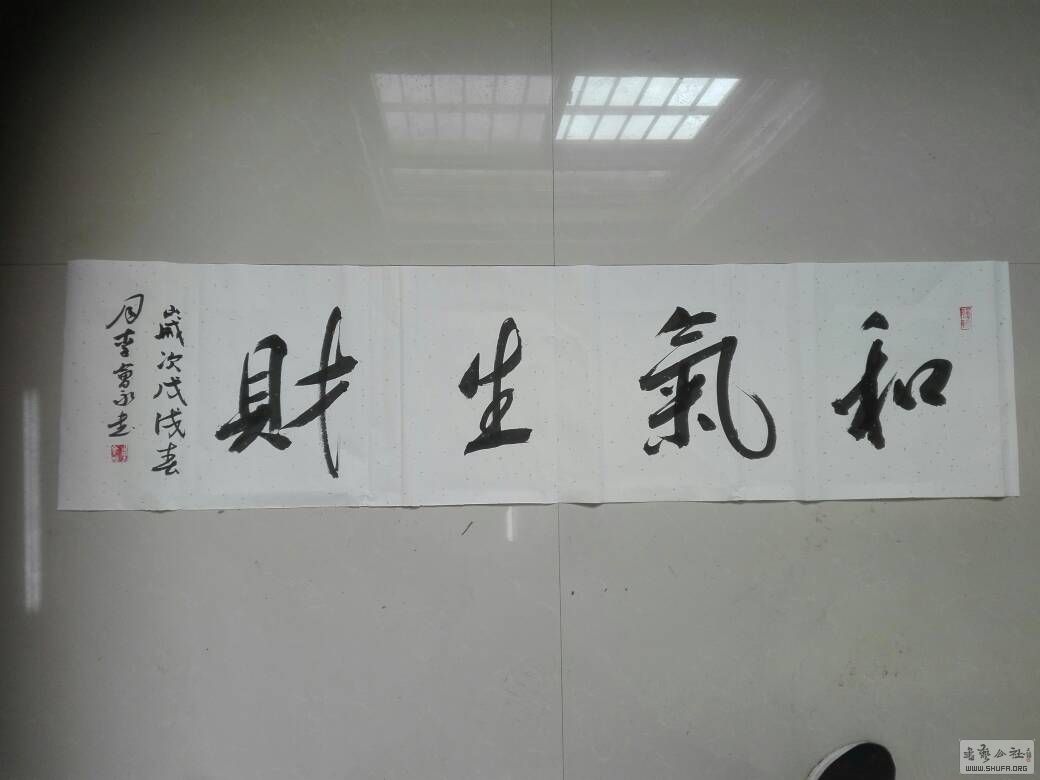 和氣生財
歲次戊戌春
月李會永書
书艺公社
WWW.SHUFA.ORG